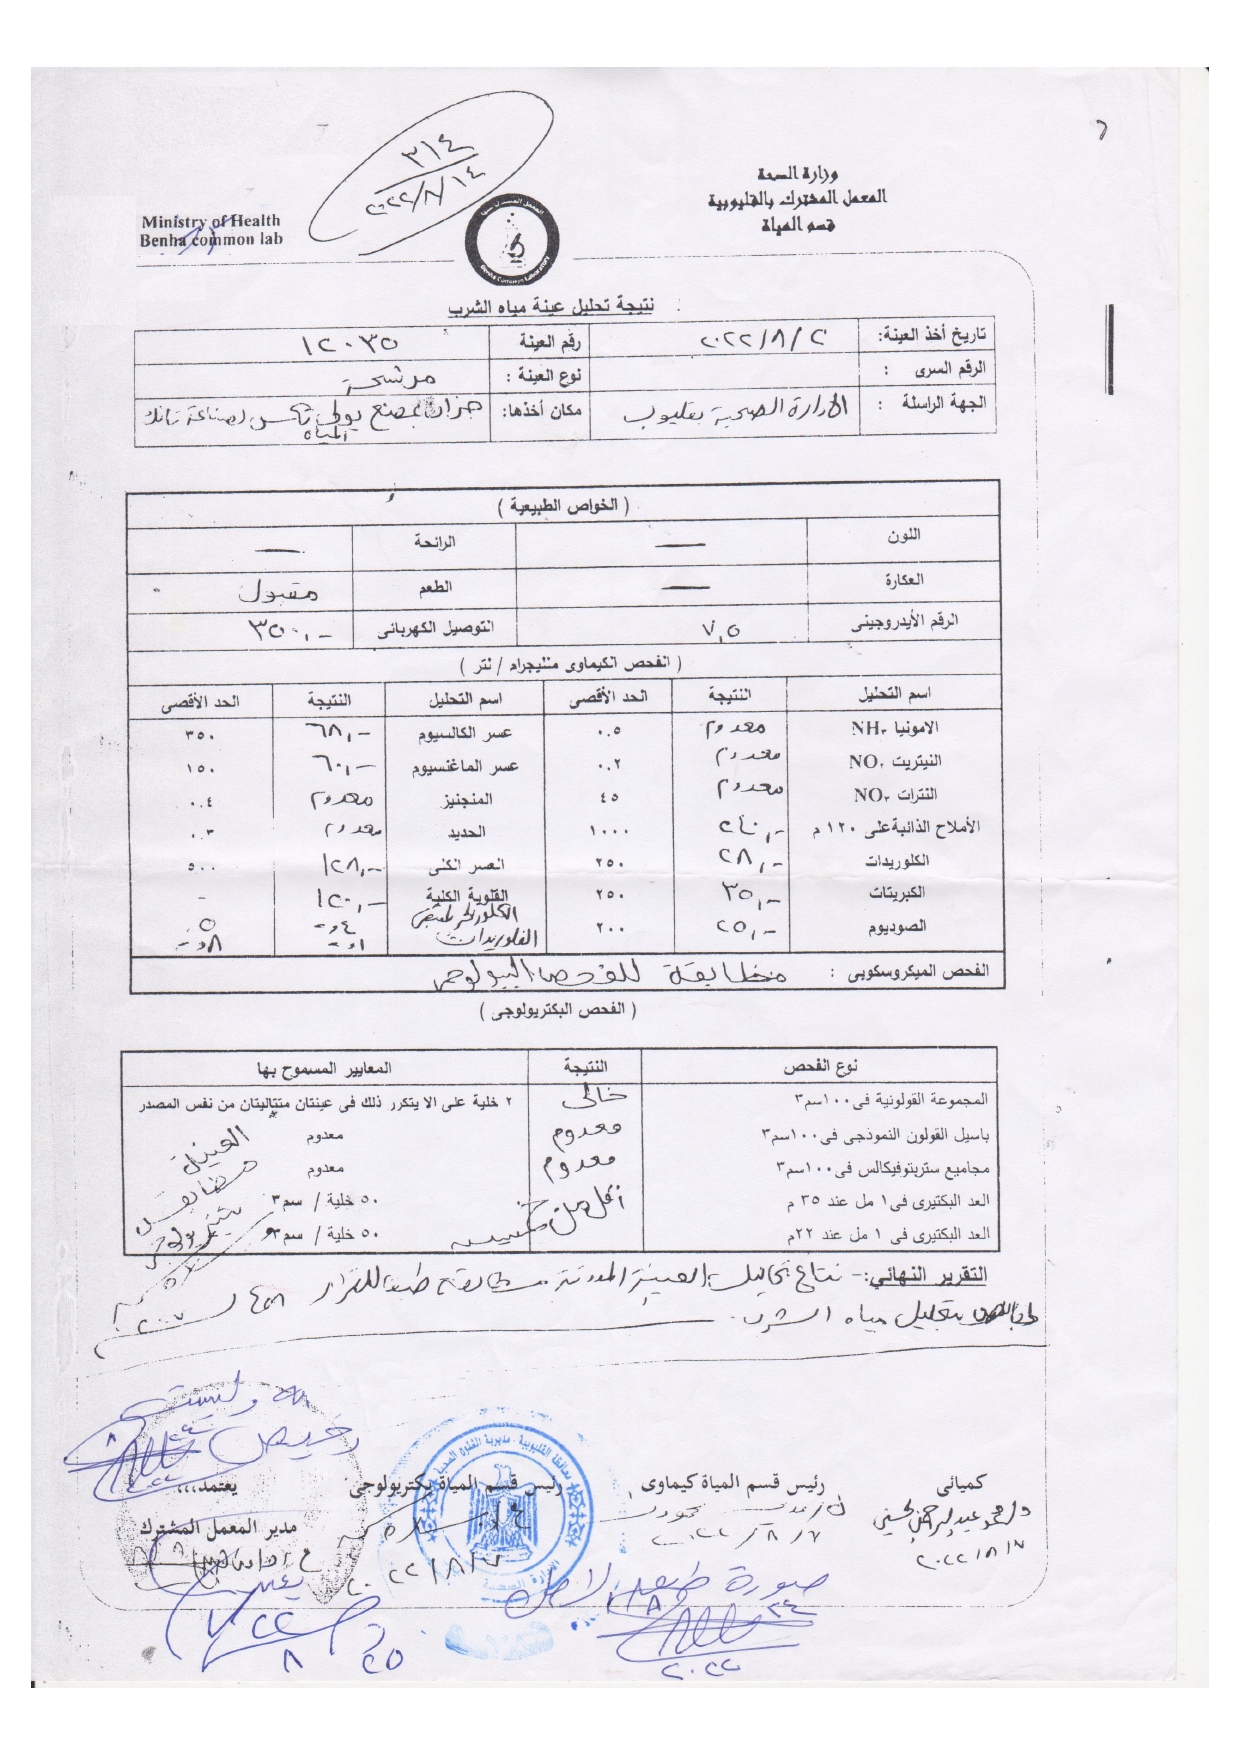 ٣١٤
٢٠٢٢/٨/١٤
وزارة الصحة
المعمل المشترك بالقليوبية
قسم المياة
Ministry of Health
Benha common lab
المعمل المشترك ببنها
Benha Common Laboratory
نتيجة تحليل عينة مياه الشرب
تاريخ أخذ العينة: ٢٠٢٢/٨/٢ رقم العينة ١٢٠٣٥
الرقم السرى : نوع العينة : مرشحة
الجهة الراسلة : الادارة الصحية بقليوب مكان أخذها: خزان بمصنع لصناعة تانك
المياه
( الخواص الطبيعية )
اللون — الرائحة —
العكارة — الطعم مقبول
الرقم الأيدروجينى ٧,٥ التوصيل الكهربائى ٣٥٠,-
( الفحص الكيماوى ملليجرام / لتر )
اسم التحليل النتيجة الحد الأقصى اسم التحليل النتيجة الحد الأقصى
الامونيا NH٣ معدوم ٠.٥ عسر الكالسيوم ٦٨,- ٣٥٠
النيتريت NO٢ معدوم ٠.٢ عسر الماغنسيوم ٦٠,- ١٥٠
النترات NO٣ معدوم ٤٥ المنجنيز معدوم ٠.٤
الأملاح الذائبة على ١٢٠ م ٢٤٠,- ١٠٠٠ الحديد معدوم ٠.٣
الكلوريدات ٢٨,- ٢٥٠ العسر الكلى ١٢٨,- ٥٠٠
الكبريتات ٣٥,- ٢٥٠ القلوية الكلية ١٢٠,- -
الصوديوم ٢٥,- ٢٠٠ الكلور المتبقى ٠,٤ ٥
الفلوريدات ٠,٨
الفحص الميكروسكوبى : مطابقة للفحص البيولوجى
( الفحص البكتريولوجى )
نوع الفحص النتيجة المعايير المسموح بها
المجموعة القولونية فى ١٠٠سم٣ خالى ٢ خلية على الا يتكرر ذلك فى عينتان متتاليتان من نفس المصدر
باسيل القولون النموذجى فى ١٠٠سم٣ معدوم معدوم
مجاميع ستربتوفيكالس فى ١٠٠سم٣ معدوم معدوم
العد البكتيرى فى ١ مل عند ٣٥ م أقل من خمسين ٥٠ خلية / سم٣
العد البكتيرى فى ١ مل عند ٢٢م ٥٠ خلية / سم٣
العينة
مطابقة
بكتريولوجى
التقرير النهائى:- نتائج تحاليل العينة المدونة مطابقة طبقا للقرار ٤٥٨ لسنة ٢٠٠٧
الخاص بتحليل مياه الشرب.
وليست
رخيص
كميائى رئيس قسم المياة كيماوى رئيس قسم المياة بكتريولوجى يعتمد،،،
مدير المعمل المشترك
٢٠٢٢/٨/٧
٢٠٢٢/٨/٧
٢٠٢٢/٨/٧
محافظة القليوبية - مديرية الشئون الصحية
وزارة الصحة
صورة طبق الاصل
٢٠٢٢